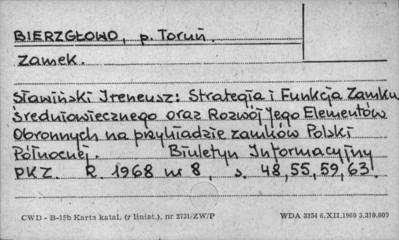 BIERZGŁOWO, p. Toruń.
Zamek.
Sławiński Ireneusz: Strategia i Funkcja Zamku
Średniowiecznego oraz Rozwój Jego Elementów
Obronnych na przykładzie zamków Polski
Północnej. Biuletyn Informacyjny
PKZ. R. 1968 nr 8, s. 48, 55, 59, 63.
CWD - B-15b Karta katal. (z liniat.), nr 2731/ZW/P WDA 3354 6.XII.1960 3.310.005